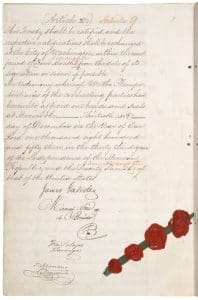 Article Article 9
This Treaty shall be ratified and the
respective ratifications shall be exchanged
at the City of Washington, within the
period of six Months from the date of its
signature or sooner if possible
In testimony whereof We the Plenipo-
tentiaries of the contracting parties have
hereunto affixed our hands and seals
at Mexico the Thirtieth 30th
day of December in the Year of Our
Lord one thousand eight hundred
and fifty three, in the thirty third year
of the Independence of the Mexican
Republic, and the Seventy
that of the United States
James Gadsden
Manuel Diez
de Bonilla
José Salazar
Ylarregui
J. Mariano
Monterde